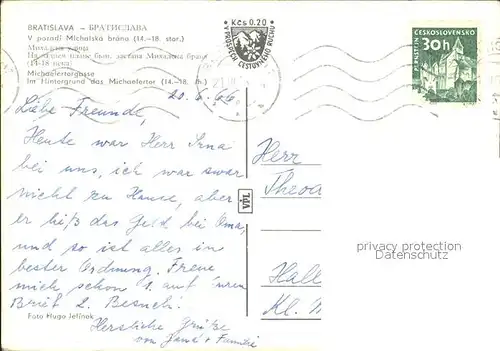 BRATISLAVA – БРАТИСЛАВА
V pozadí Michalská brána (14.–18. stor.)
Михалска улица
На заднем плане быв. застава Михалина брана
(14-18 века)
Michaelertorgasse
Im Hintergrund das Michaelertor (14.–18. Jh.)
Kčs 0.20
V PROSPECH CESTOVNÉHO RUCHU
ČESKOSLOVENSKO
30h
PERNŠTEJN
20. 6. 66
Liebe Freunde,
Heute war Herr Irna
bei uns, ich war zwar
nicht zu Hause, aber
er ließ das Geld bei Oma,
und so ist alles in
bester Ordnung. Freue
mich schon 1. auf Ihren
Brief 2. Besuch!
Foto Hugo Jelínek
Herzliche Grüße
von Jana + Familie
VPL
Herr
Theo
Hall
Kl.
privacy protection
Datenschutz